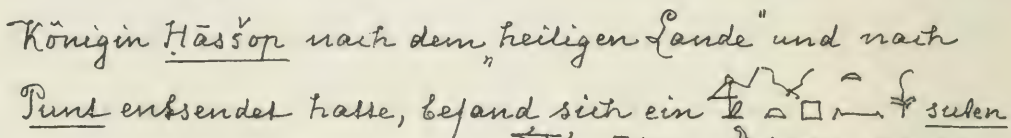 Königin Ḥāsšop nach dem „heiligen Lande" und nach
Punt entsendet hatte, befand sich ein suten